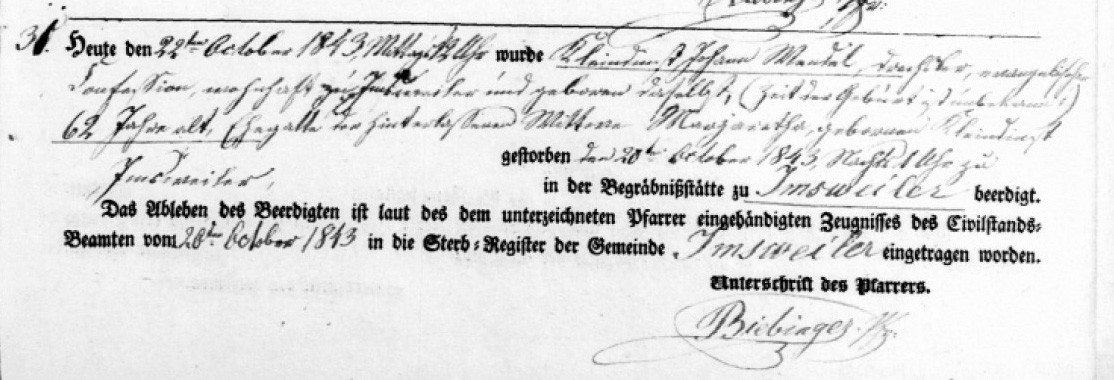 31.
Heute den 22ten October 1843, Mittags 12 Uhr wurde Kleindinst Johann Wendel, evangelischer
Confession, wohnhaft zu Imsweiler und geboren daselbst, (Zeit der Geburt ist unbekannt)
62 Jahre alt, Ehegatte der hinterlassenen Wittwe Margaretha, gebornen Kleindinst
gestorben den 20ten October 1843, Nachts 1 Uhr zu
Imsweiler, in der Begräbnißstätte zu Imsweiler beerdigt.
Das Ableben des Beerdigten ist laut des dem unterzeichneten Pfarrer eingehändigten Zeugnisses des Civilstands-
Beamten vom 20ten October 1843 in die Sterb-Register der Gemeinde Imsweiler eingetragen worden.
Unterschrift des Pfarrers.
Biebinger, Pfr.